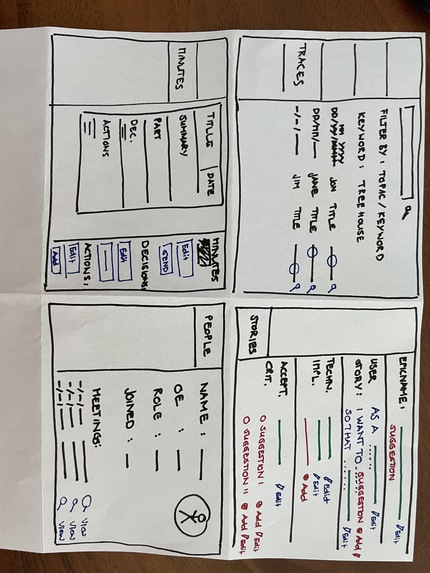 TRACES
FILTER BY: TOPIC / KEYWORD
KEYWORD: TREE HOUSE
DD/MM/YYYY JON TITLE
DD/MM/— JANE TITLE
-/-/— JIM TITLE
STORIES
EPICNAME: SUGGESTION Edit
USER STORY: AS A ..... Edit
I WANT TO SUGGESTION Add
SO THAT ...... Edit
TECHN. IMPL. Edit
Edit
Add
ACCEPT. CRIT. Edit
SUGGESTION I Add Edit
SUGGESTION II Add Edit
MINUTES
TITLE DATE
SUMMARY
PART
DEC.
ACTIONS
MINUTES
Edit
SEND
DECISION:
Edit
ACTIONS:
Edit
Add
PEOPLE
NAME:
OE:
ROLE:
JOINED:
MEETINGS:
-/-/- VIEW
-/-/- VIEW
-/-/- VIEW